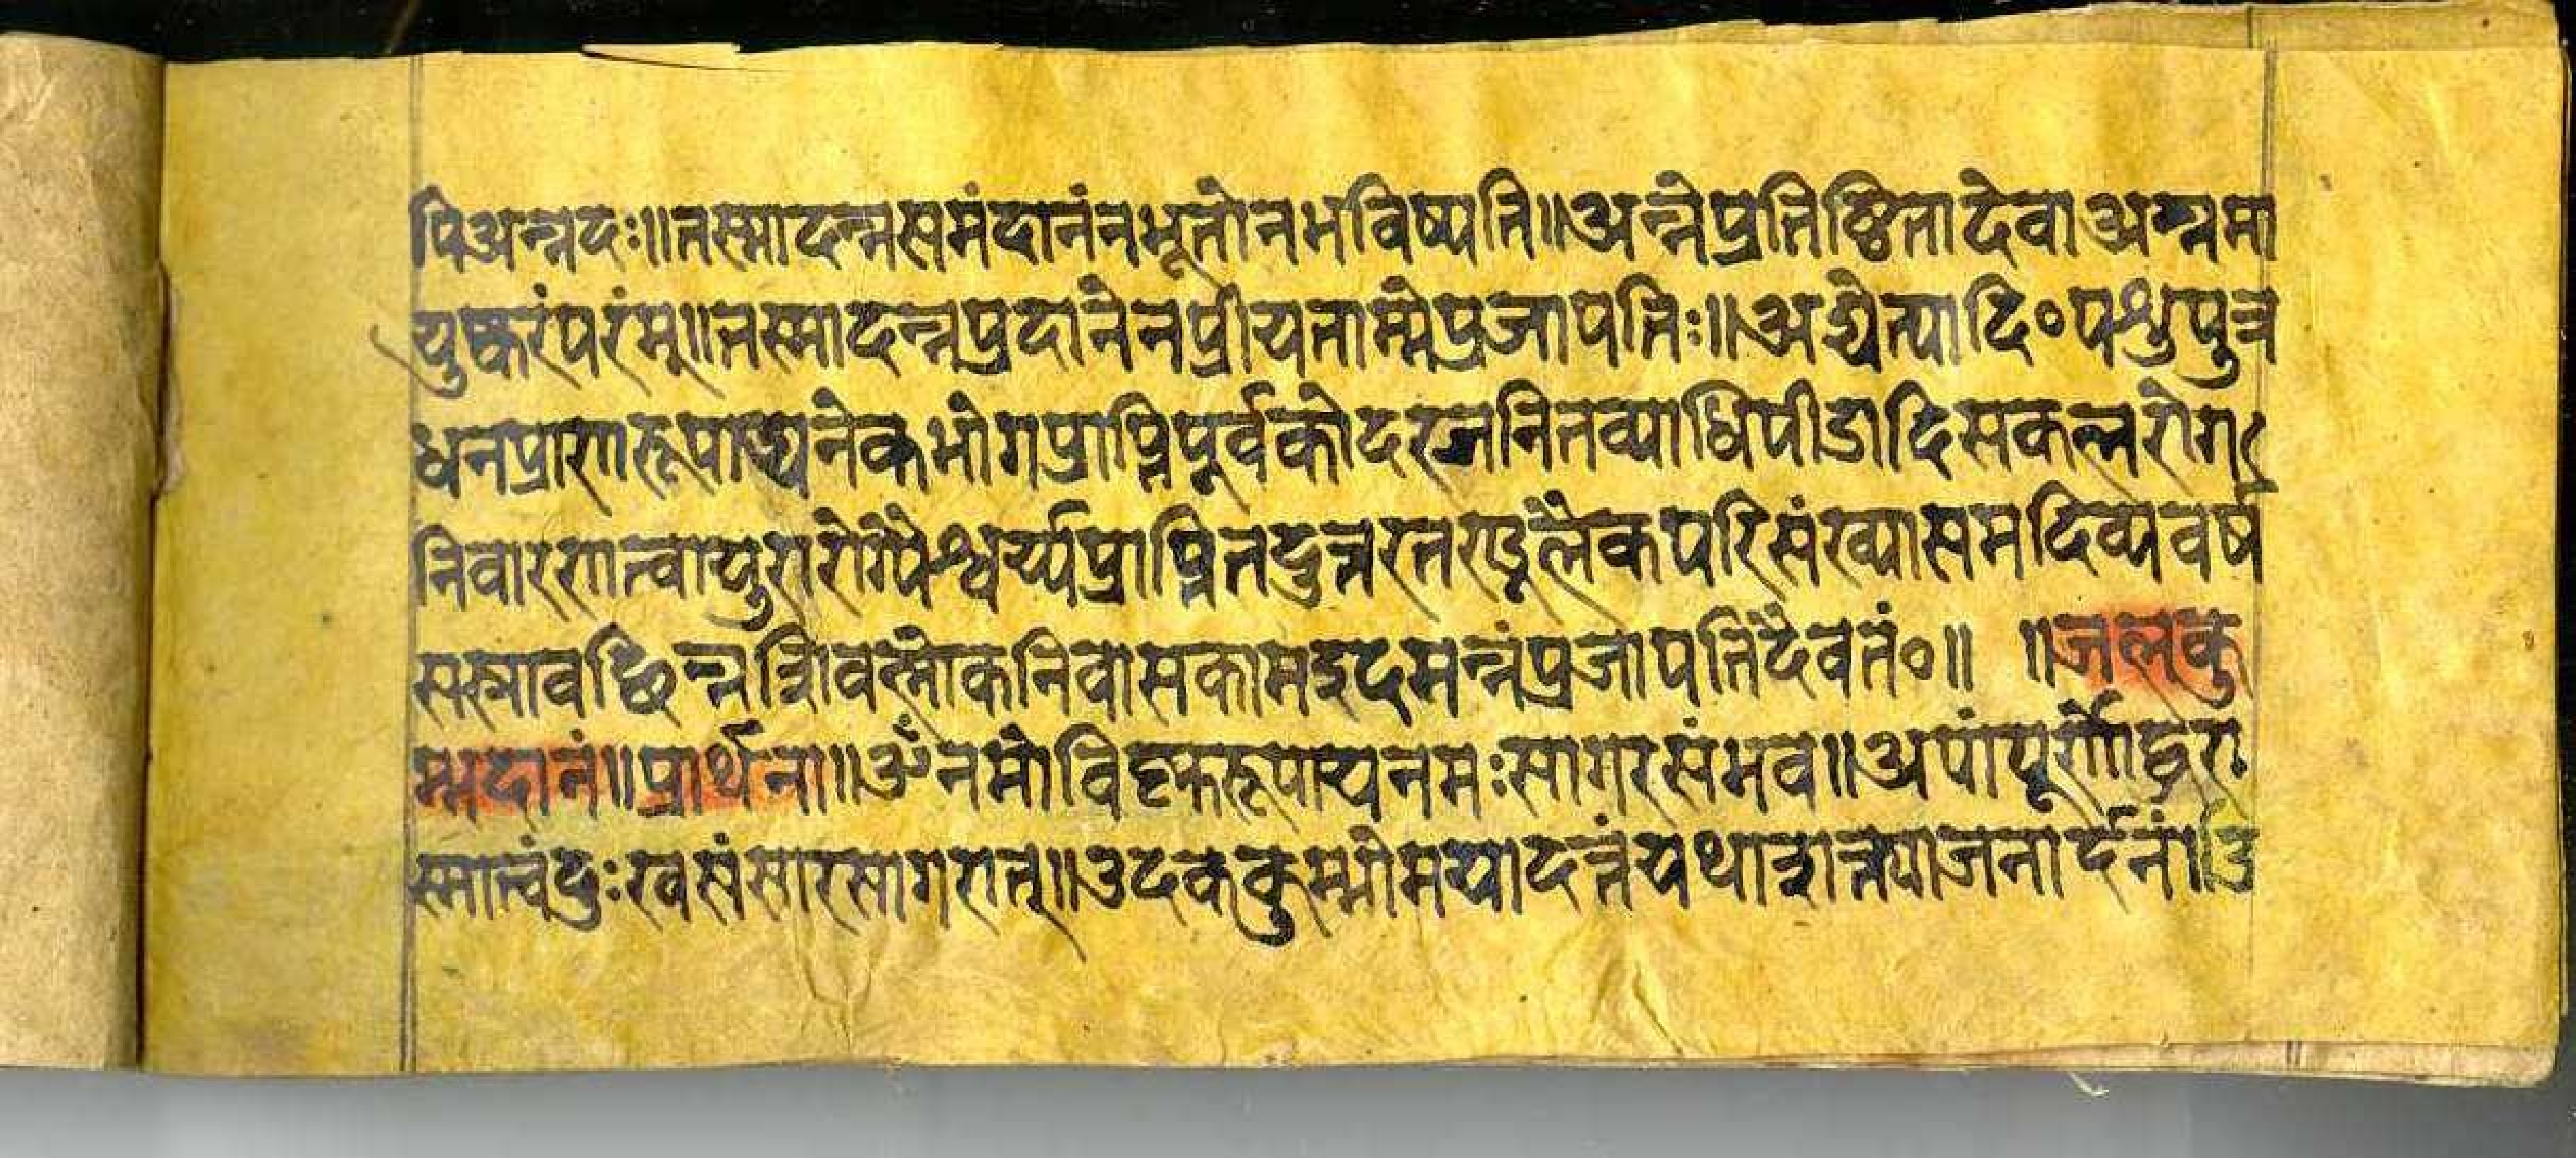 पिअन्नदः॥तस्मादन्नसमंदानंनभूतोनभविष्यति॥अन्नेप्रतिष्ठितादेवाअन्नमा
युष्करंपरंम्॥तस्मादन्नप्रदानेनप्रीयताम्मेप्रजापतिः॥अद्येत्यादि०पशुपुत्र
धनप्राणरूपाद्यनेकभोगप्राप्तिपूर्वकोदरजनितव्याधिपीडादिसकलरोग
निवारणत्वायुरारोग्यैश्वर्य्यप्राप्तितदुत्तरतण्डूलैकपरिसंख्यासमदिव्यवर्ष
सस्रावछिन्नशिवलोकनिवासकामइदमन्नंप्रजापतिदैवतं०॥ ॥जलकु
म्भदानं॥प्रार्थना॥ॐनमोविष्णुरूपायनमःसागरसंभव॥अपांपूर्णोद्धरा
स्मात्त्वंदुःखसंसारसागरात्॥उदककुम्भोमयादत्तंयथाशक्त्याजनार्दनं॥उ